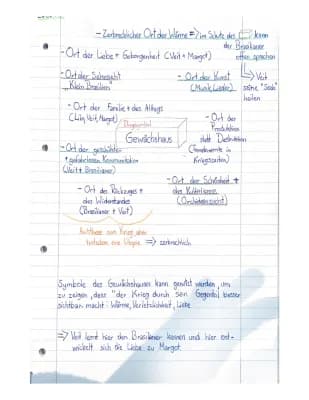 - Zerbrechlicher Ort der Wärme => im Schutz des kann der Brasilianer offen sprechen
- Ort der Liebe + Geborgenheit (Veit + Margot)
↳ Veit
seine "Seele" heilen
- Ort der Sehnsucht
"Klein Brasilien"
- Ort der Kunst
(Musik, Lieder)
- Ort der Familie + des Alltags
(Lilo, Veit, Margot)
- Ort der
Produktion
statt Destruktion
in
Kriegszeiten)
Gewächshaus
- Ort der geschützten
+ gefahrlosen Kommunikation
(Veit + Brasilianer)
- Ort des Rückzuges +
des Widerstandes
(Brasilianer + Veit)
- Ort der Schönheit +
des
(Orchideenzucht)
vom Krieg aber
trotzdem eine Utopie => zerbrechlich
Symbole des Gewächshauses kann genutzt werden, um
zu zeigen, dass "der Krieg durch sein Gegenteil besser
sichtbar macht: Wärme, Verletzlichkeit, Liebe
=> Veit lernt hier den Brasilianer kennen und hier ent-
wickelt sich die Liebe zu Margot